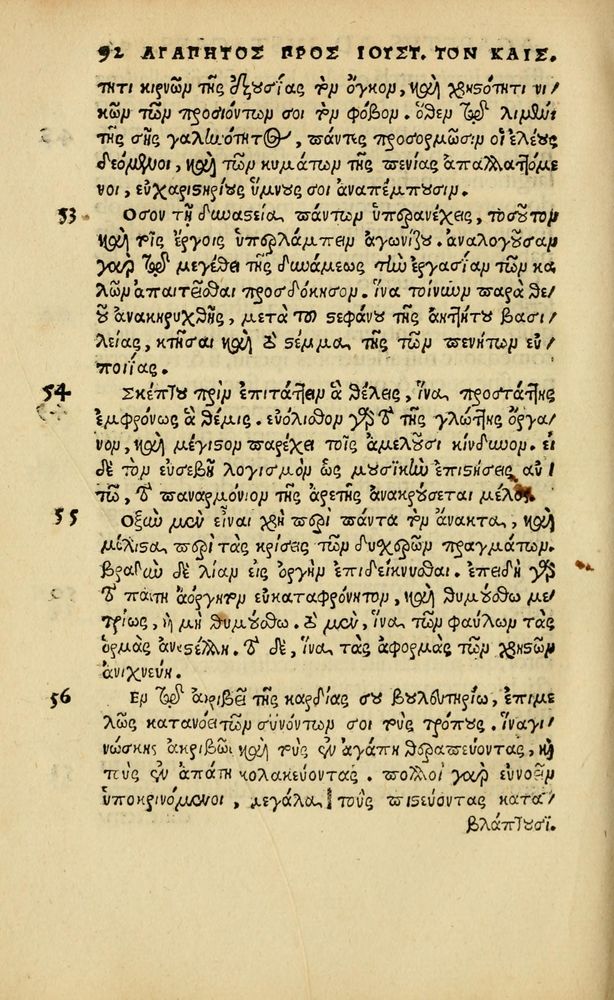 92 ΑΓΑΠΗΤΟΣ ΠΡΟΣ ΙΟΥΣΤ. ΤΟΝ ΚΑΙΣ.
τητι κιρνῶν τῆς ἐξουσίας τὸν ὄγκον, καὶ χρηστότητι νι/
κῶν τῶν προσιόντων σοι τὸν φόβον. ὅθεν τῷ λιμένι
τῆς σῆς γαληνότητος, πάντες προσορμῶσιν οἱ ἐλέους
δεόμενοι, καὶ τῶν κυμάτων τῆς πενίας ἀπαλλαττόμε
νοι, εὐχαριστηρίους ὕμνους σοι ἀναπέμπουσιν.
53 Οσον τῇ δυναστείᾳ πάντων ὑπερανέχεις, τοσοῦτον
καὶ τοῖς ἔργοις ὑπερλάμπειν ἀγωνίζου. ἀναλογοῦσαν
γὰρ τῷ μεγέθει τῆς δυνάμεως τὴν ἐργασίαν τῶν κα
λῶν ἀπαιτεῖσθαι προσδόκησον. ἵνα τοίνυν παρὰ θε/
οῦ ἀνακηρυχθῇς, μετὰ τοῦ στεφάνου τῆς ἀηττήτου βασι/
λείας, κτῆσαι καὶ τὸ στέμμα τῆς τῶν πενήτων εὐ/
ποιΐας.
54 Σκέπτου πρὶν ἐπιτάττειν ἃ θέλεις, ἵνα προστάττῃς
ἐμφρόνως ἃ θέμις. εὐόλισθον γὰρ τὸ τῆς γλώττης ὄργα/
νον, καὶ μέγιστον παρέχει τοῖς ἀμελοῦσι κίνδυνον. εἰ
δὲ τὸν εὐσεβῆ λογισμὸν ὡς μουσικὸν ἐπιστήσεις αὐ/
τῷ, τὸ παναρμόνιον τῆς ἀρετῆς ἀνακρούσεται μέλος.
55 Οξὺν μὲν εἶναι χρὴ περὶ πάντα τὸν ἄνακτα, καὶ
μάλιστα περὶ τὰς κρίσεις τῶν δυσχερῶν πραγμάτων.
βραδὺν δὲ λίαν εἰς ὀργὴν ἐπιδείκνυσθαι. ἐπειδὴ γὰρ
τὸ πάντη ἀόργητον εὐκαταφρόνητον, καὶ θυμούσθω με/
τρίως, καὶ μὴ θυμούσθω. τὸ μὲν, ἵνα τῶν φαύλων τὰς
ὁρμὰς ἀναστέλλῃ. τὸ δὲ, ἵνα τὰς ἀφορμὰς τῶν χρηστῶν
ἀνιχνεύῃ.
56 Εν τῷ ἀκριβεῖ τῆς καρδίας σου βουλευτηρίῳ, ἐπιμε
λῶς κατανόει τῶν συνόντων σοι τοὺς τρόπους. ἵνα γι/
νώσκῃς ἀκριβῶς καὶ τοὺς σὺν ἀγάπῃ θεραπεύοντας, καὶ
τοὺς σὺν ἀπάτῃ κολακεύοντας. πολλοὶ γὰρ εὐνοεῖν
ὑποκρινόμενοι, μεγάλα τοὺς πιστεύοντας κατα/
βλάπτουσι.